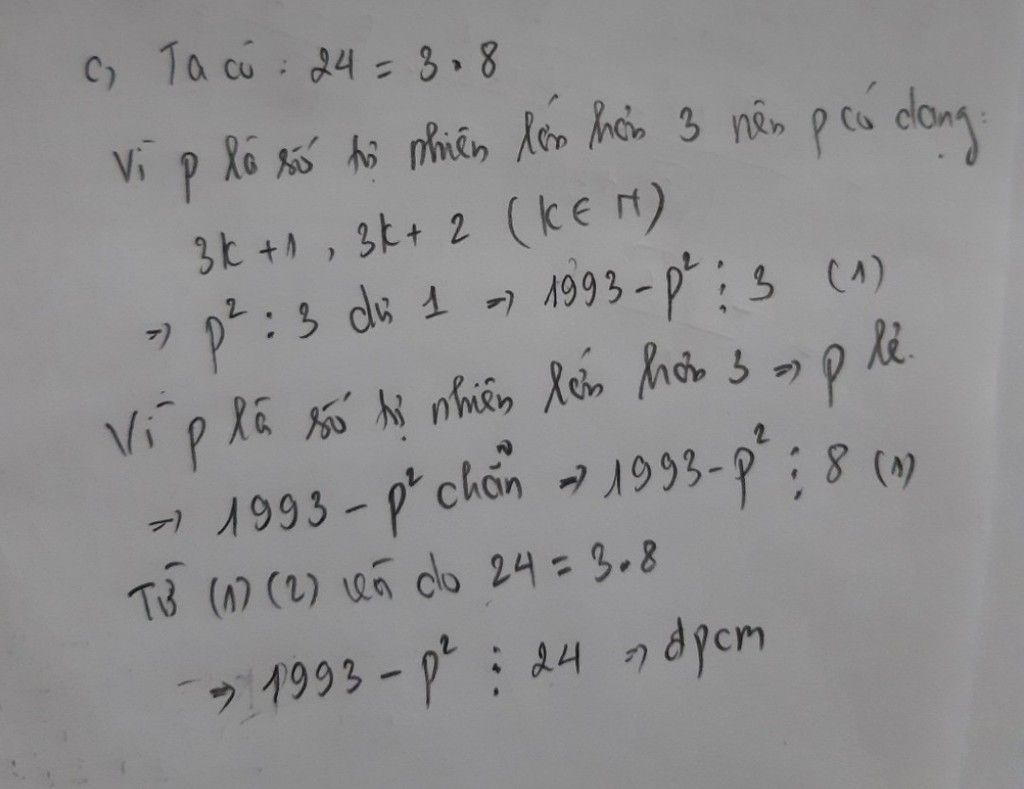 c, Ta có : 24 = 3 . 8
Vì p là số tự nhiên lớn hơn 3 nên p có dạng:
3k + 1 , 3k + 2 (k ∈ N)
=> p² : 3 dư 1 => 1993 - p² ⋮ 3 (1)
Vì p là số tự nhiên lớn hơn 3 => p lẻ.
=> 1993 - p² chẵn => 1993 - p² ⋮ 8 (1)
Từ (1) (2) và do 24 = 3.8
=> 1993 - p² ⋮ 24 => đpcm